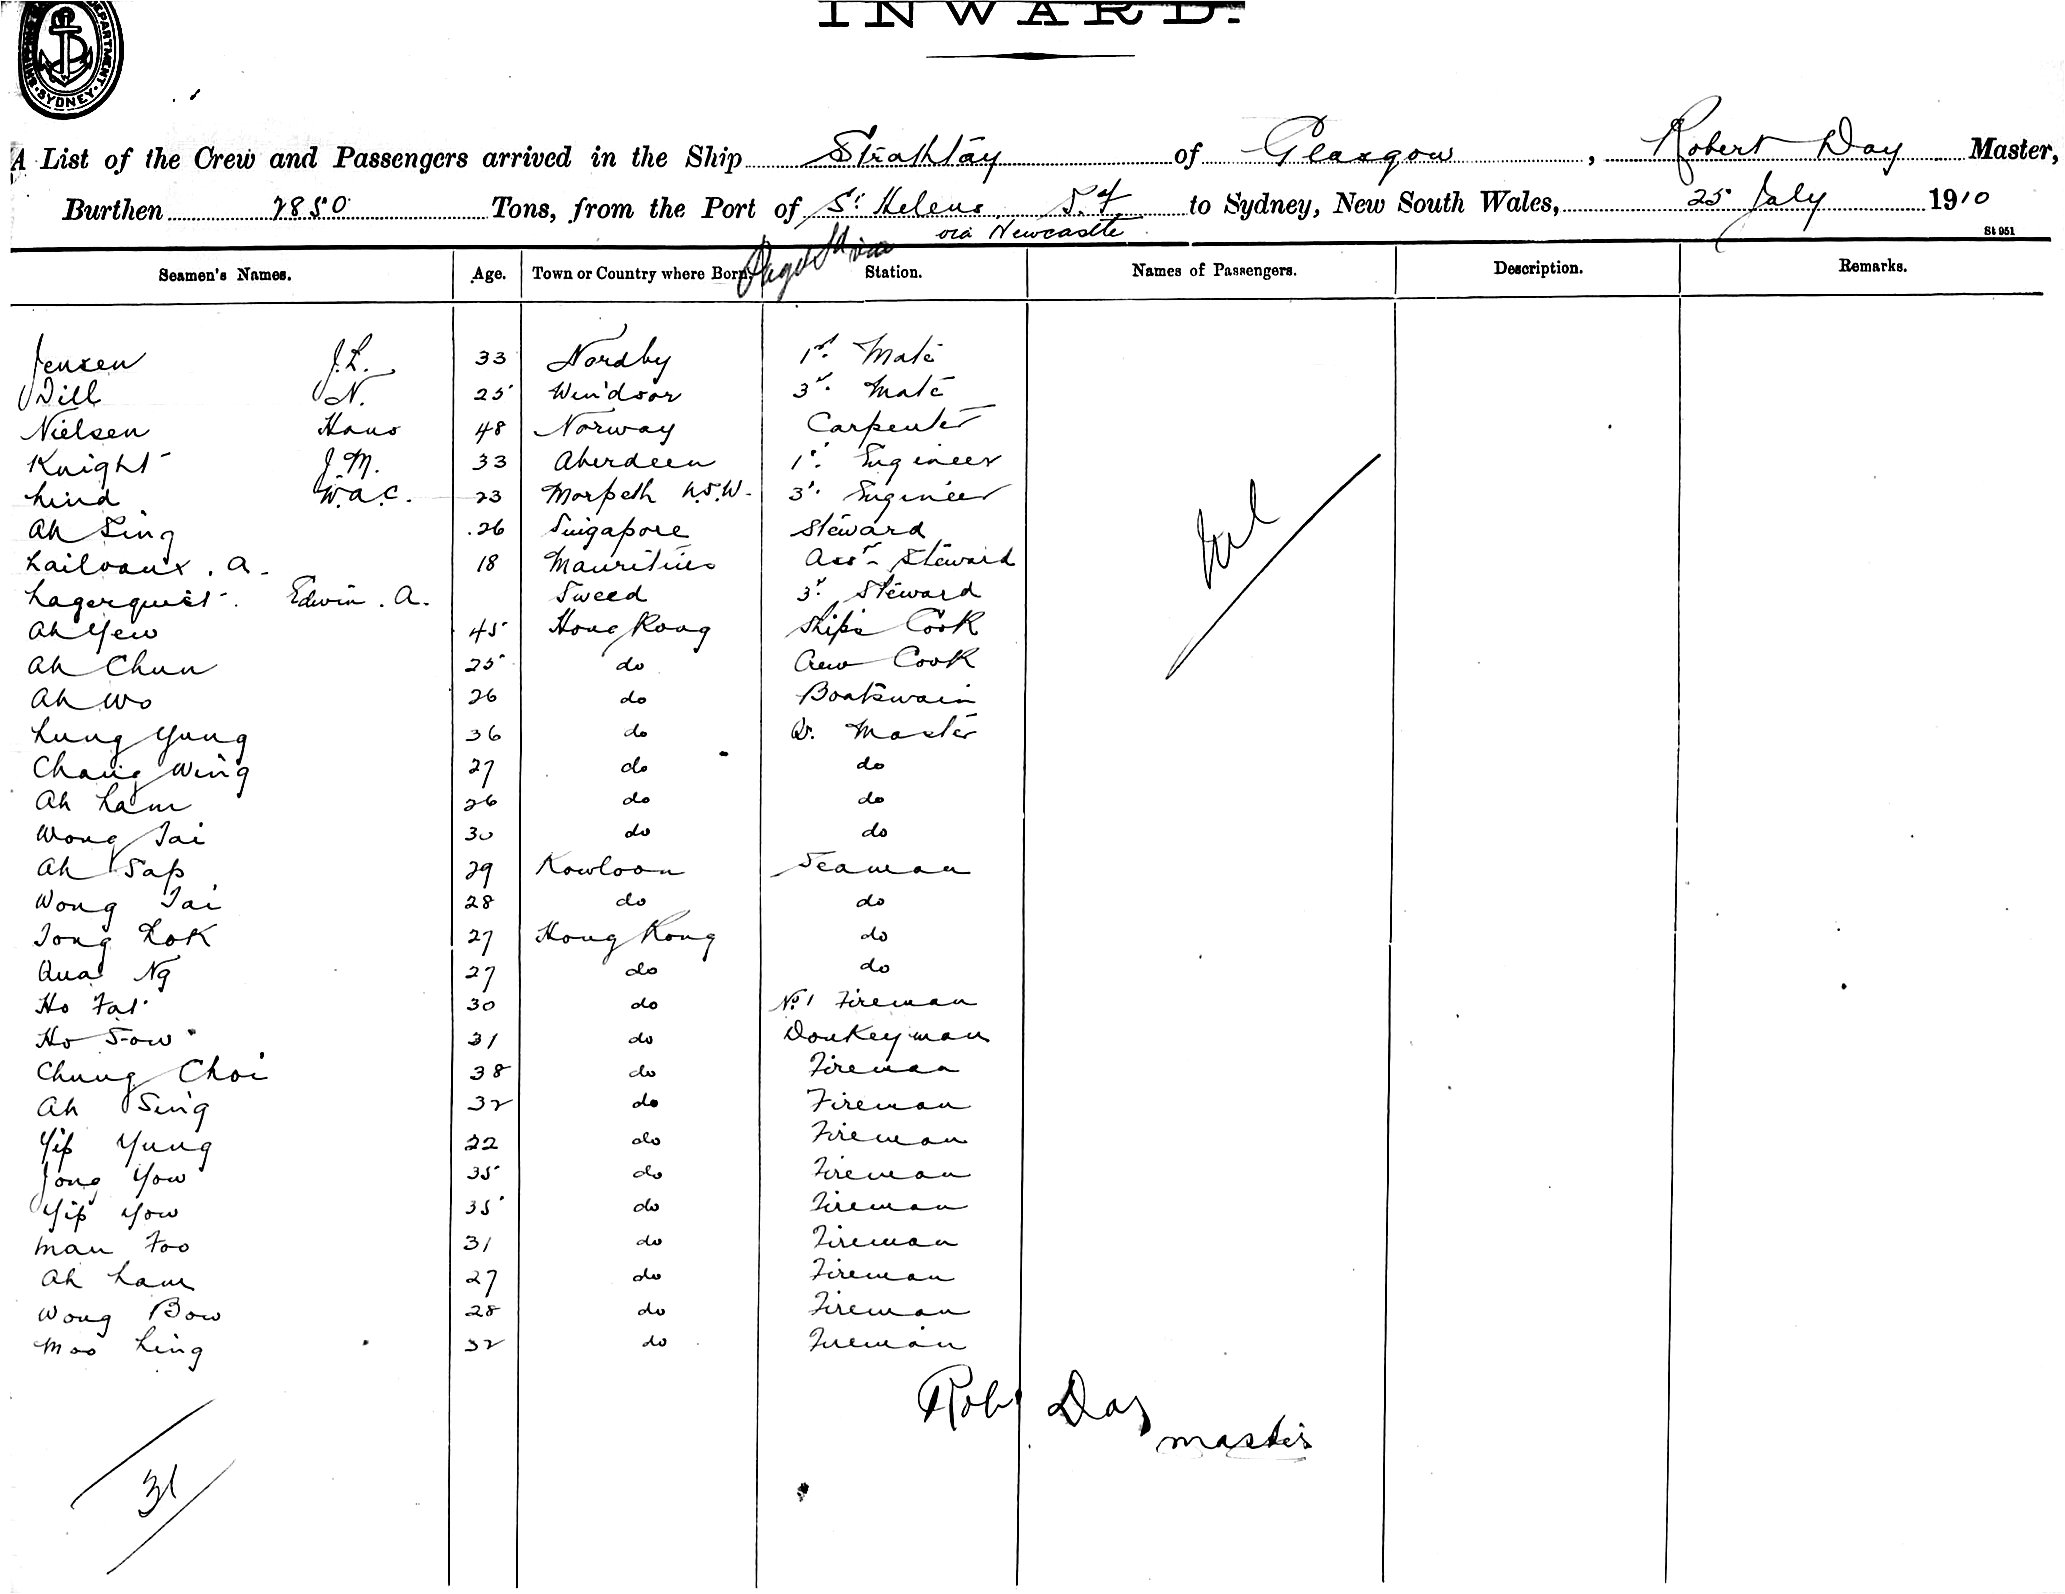 INWARD.
DEPARTMENT SYDNEY
A List of the Crew and Passengers arrived in the Ship Strathtay of Glasgow, Robert Day Master,
Burthen 2850 Tons, from the Port of St Helens to Sydney, New South Wales, 25 July 1910
via Newcastle
St 951
Seamen's Names. Age. Town or Country where Born. Station. Names of Passengers. Description. Remarks.
Jensen J.L. 33 Nordby 1st Mate
Dill N. 25 Windsor 3r. Mate
Nielsen Hans 48 Norway Carpenter
Knight J.M. 33 Aberdeen 1st Engineer
Lind W.A.C. 23 Morpeth N.S.W. 3r. Engineer
Ah Sing 26 Singapore Steward
Lailvaux. A. 18 Mauritius Asst Steward
Lagerquist. Edwin. A. Sweed 3r. Steward
Ah Yew 45 Hong Kong Ships Cook
Ah Chun 25 do Crew Cook
Ah Wo 26 do Boatswain
Lung Yung 36 do Q. Master
Chang Wing 27 do do
Ah Lam 26 do do
Wong Tai 30 do do
Ah Sap 29 Kowloon Seaman
Wong Tai 28 do do
Tong Lok 27 Hong Kong do
Qua Ng 27 do do
Ho Fat 30 do No 1 Fireman
Ho Sow 31 do Donkeyman
Chung Choi 38 do Fireman
Ah Sing 32 do Fireman
Yip Yung 22 do Fireman
Jong Yow 35 do Fireman
Yip Yow 35 do Fireman
Man Foo 31 do Fireman
Ah Lam 27 do Fireman
Wong Bow 28 do Fireman
Moo Ling 32 do Fireman
Nil
Robt Day
Master
31